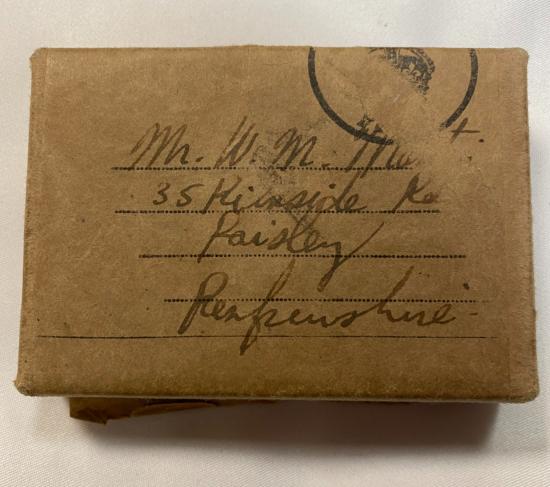 Mr. W. M.
35 Kilnside Ro
Paisley
Renfrewshire